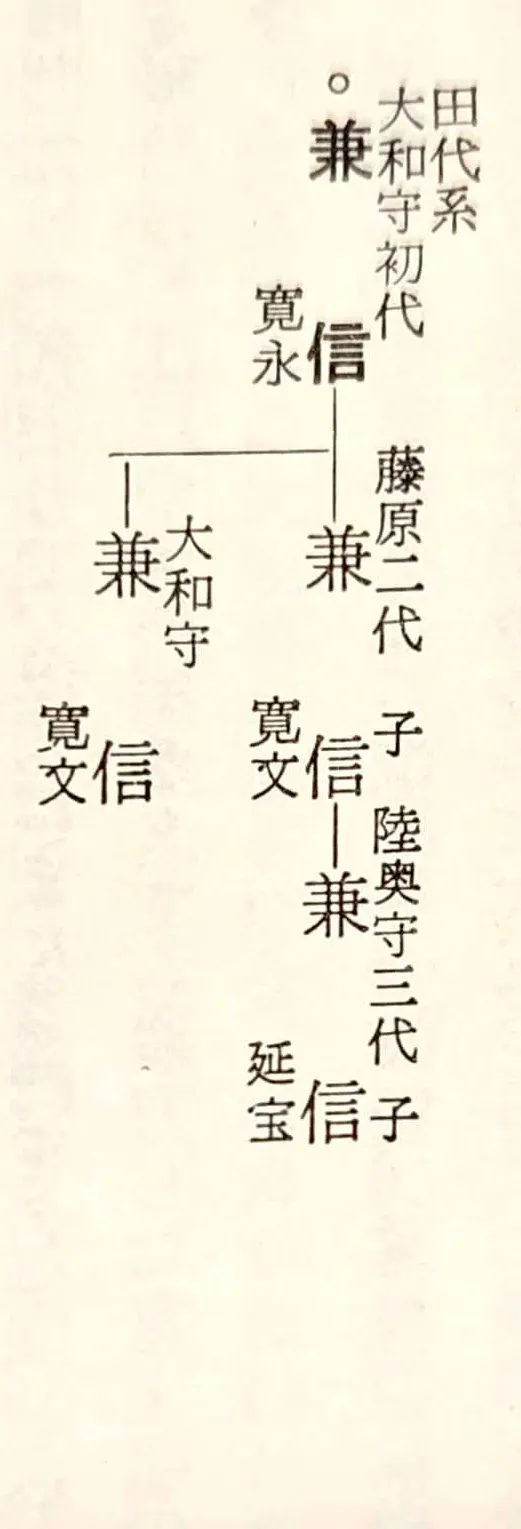 田代系
大和守初代
。兼信
寛永
藤原二代 子
兼信
寛文
陸奥守三代 子
兼信
延宝
大和守
兼信
寛文